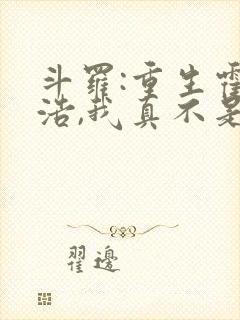 斗羅:重生霍
浩,我真不是
翟邊